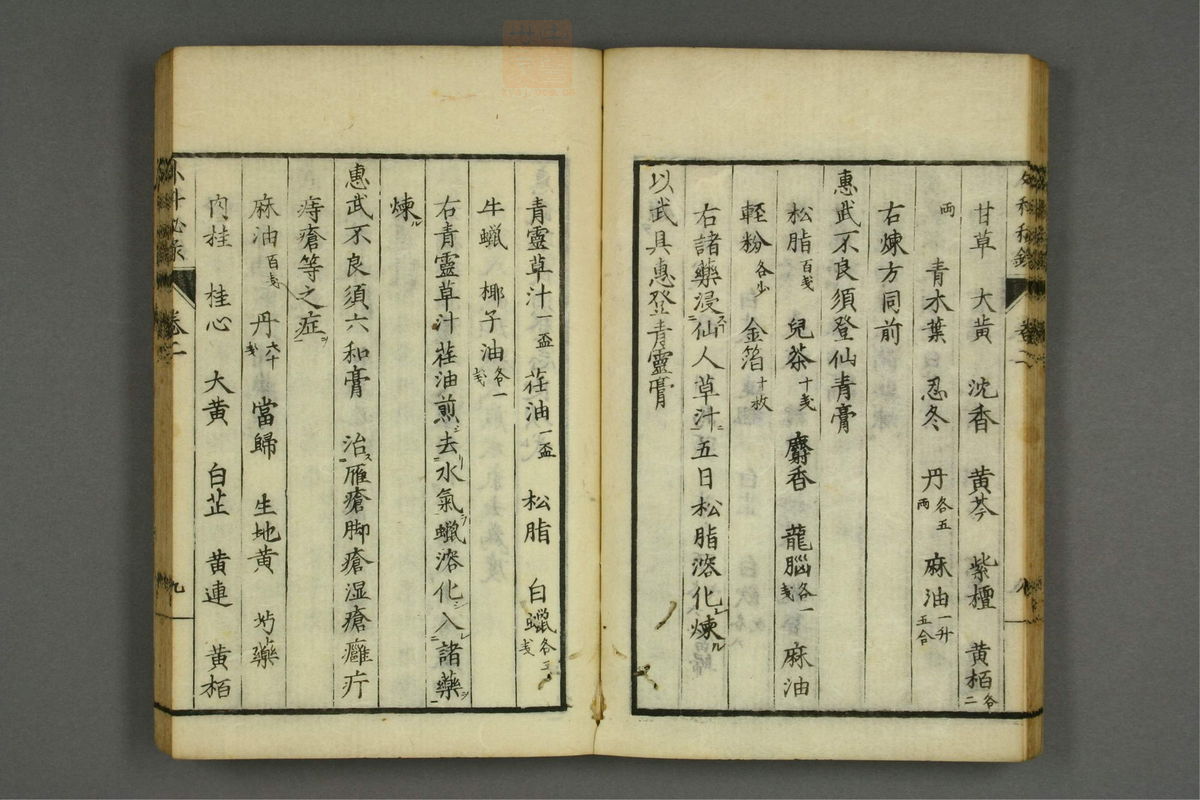 甘草　大黄　沈香　黄芩　紫檀　黄栢各二
両　青木葉　忍冬　丹各五両　麻油一升五合
右煉方同前
惠武不良須登仙青膏
松脂百戔　兒茶十戔　麝香　龍腦各一戔　麻油
軽粉各少　金箔十枚
右諸藥浸仙人草汁五日松脂溶化煉ル
以武具惠登青靈膏
青靈草汁一盃　荏油一盃　松脂　白蠟各三戔
牛蠟　椰子油各一戔
右青靈草汁荏油煎去水氣蠟溶化入諸藥
煉ル
惠武不良須六和膏　治雁瘡脚瘡湿瘡癰疔
痔瘡等之症
麻油百戔　丹六十戔　當歸　生地黄　芍藥
肉桂　桂心　大黄　白芷　黄連　黄栢
外科秘录　卷二　九